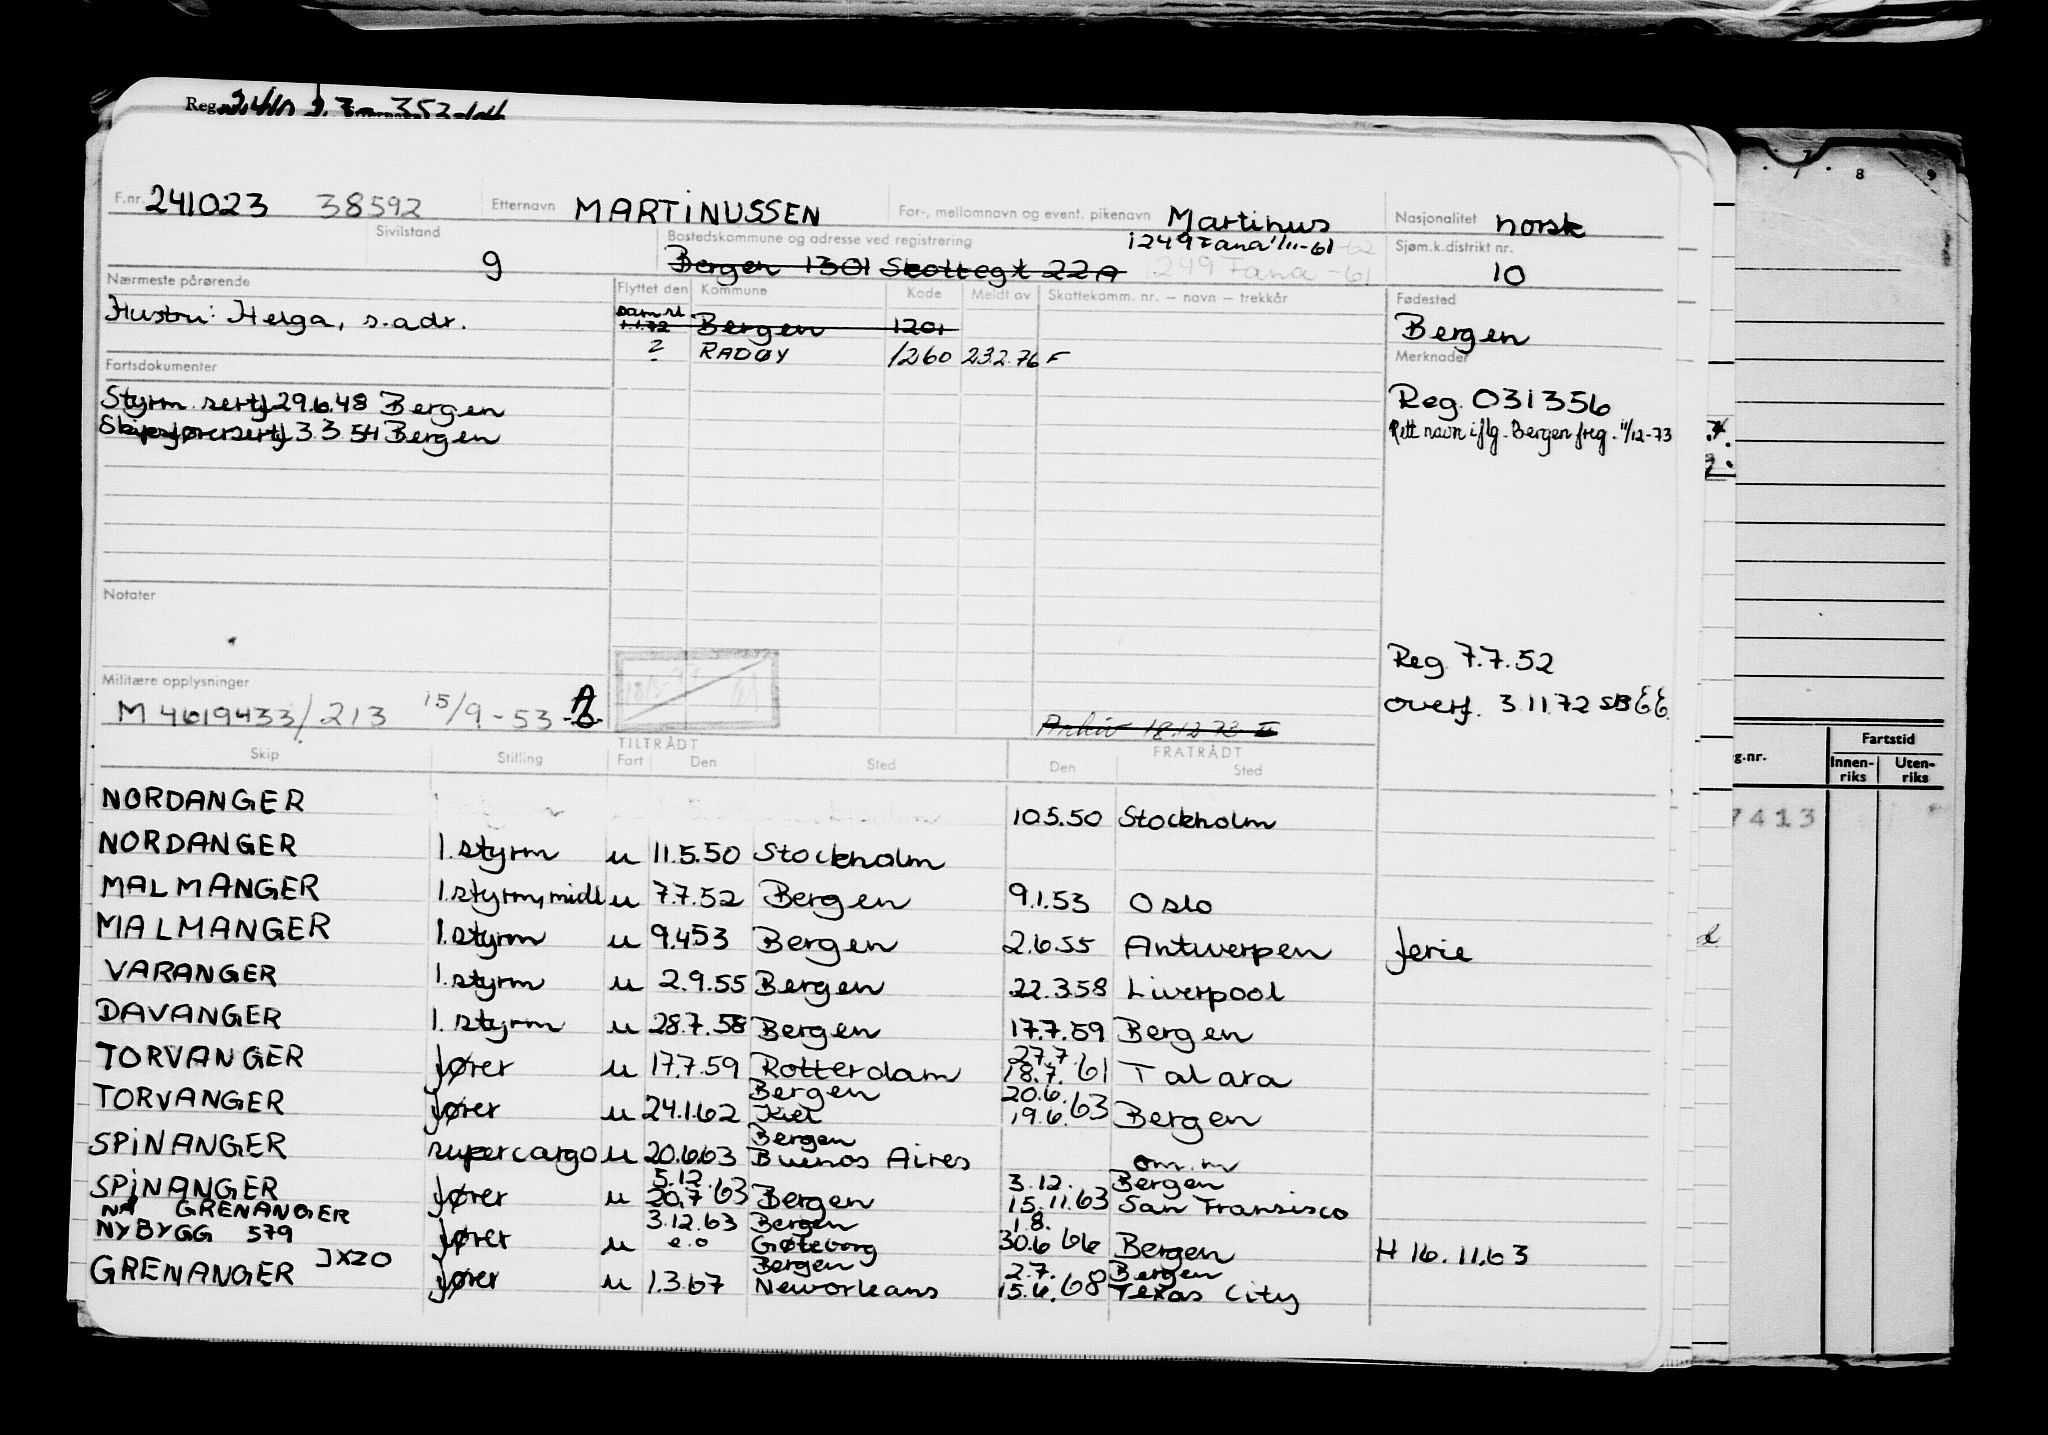 Reg.
F.nr. 241023 38592 Etternavn MARTINUSSEN For-, mellomnavn og event. pikenavn Martinus Nasjonalitet norsk
Sivilstand g Bostedskommune og adresse ved registrering Bergen 1301 Skottegt 22A 1249 Fana 1/11-61 Sjøm.k.distrikt nr. 10
1249 Fana -61
Nærmeste pårørende Flyttet den Kommune Kode Meldt av Skattekomm. nr. – navn – trekkår Fødested
Hustru: Helga, s.adr. 1.1.72 Bergen 1201 Bergen
? RADØY 1260 23.2.76 F Merknader
Fartsdokumenter
Styrm. sertf 29.6.48 Bergen Reg. 031356
Skipsførersertf 3 3 54 Bergen Rett navn iflg. Bergen freg. 11/12-73
Notater
Reg 7.7.52
Militære opplysninger
M 4619433/213 15/9-53 A overf. 3.11.72 SB
Arkiv 18.12.72
Skip Stilling TILTRÅDT Fart Den Sted FRATRÅDT Den Sted
NORDANGER 10.5.50 Stockholm
NORDANGER 1.styrm u 11.5.50 Stockholm
MALMANGER 1.styrm, midl u 7.7.52 Bergen 9.1.53 Oslo
MALMANGER 1.styrm u 9.453 Bergen 2.6.55 Antwerpen ferie
VARANGER 1.styrm u 2.9.55 Bergen 22.3.58 Liverpool
DAVANGER 1.styrm u 28.7.58 Bergen 17.7.59 Bergen
27.7.
TORVANGER fører u 17.7.59 Rotterdam 18.7.61 Talara
Bergen 20.6.
TORVANGER fører u 24.1.62 Kiel 19.6.63 Bergen
Bergen
SPINANGER supercargo u 20.6.63 Buenos Aires om.m
5.12. 3.12. Bergen
SPINANGER fører u 20.7.63 Bergen 15.11.63 San Fransisco
NÅ GRENANGER 3.12.63 Bergen 1.8.
NYBYGG 579 fører u e.o Gøteborg 30.6.66 Bergen H 16.11.63
Bergen 2.7. Bergen
GRENANGER JXZO fører u 1.3.67 Neworleans 15.6.68 Texas City
7 8 9
g.nr. Fartstid
Innen-riks Uten-riks
7413